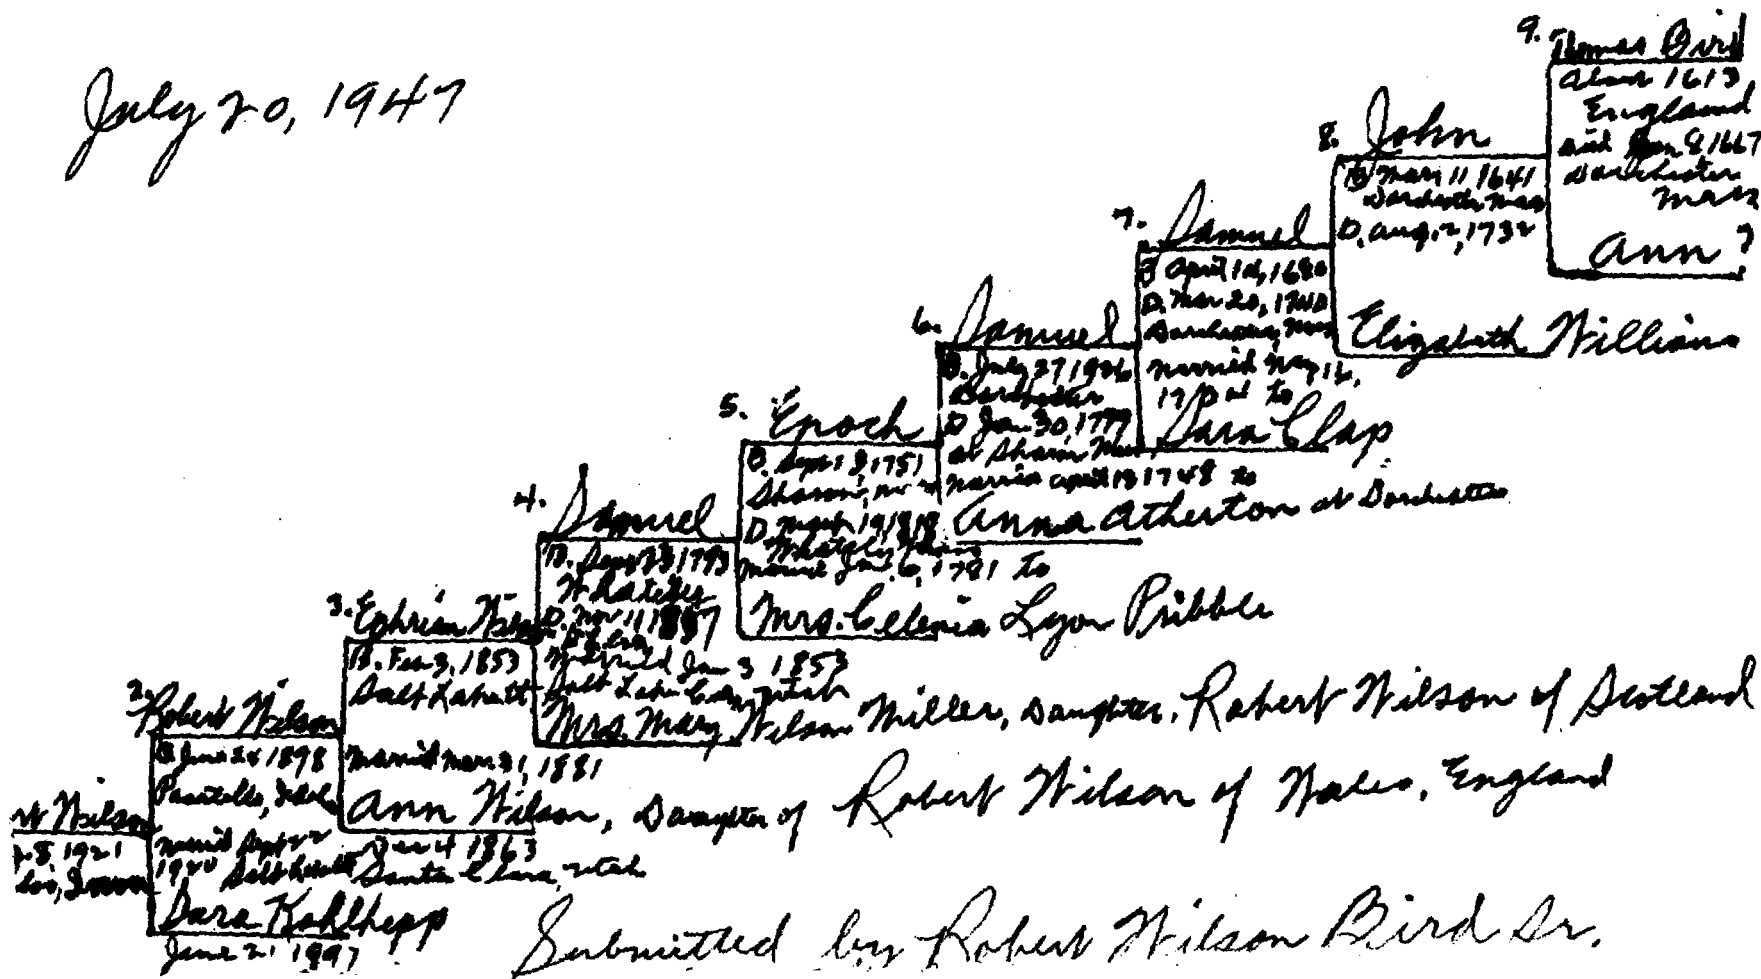 July 20, 1947
9. Thomas Bird
About 1613,
England
Died Jan 8 1667
Dorchester
Mass
Ann ?
8. John
B Mar 11 1641
Dorchester Mass
D. Aug 2, 1732
Elizabeth Williams
7. Samuel
B April 14, 1680
D. Mar 20, 1740
Dorchester, Mass
Married May 16,
to
Sara Clap
6. Samuel
B. July 27 1926
Dorchester
D Jan 30, 1779
at Sharon Mass
Married April 13 1748 to
Anna Atherton at Dorchester
5. Enoch
B. Sept 13, 1751
Sharon,
D. 19, 1818
Whately Mass
Married Jan. 6, 1781 to
Mrs. Celenia Lyon Pribble
4. Samuel
B. 23 1793
Whately
D. Nov 11 1887
Married Jan 3 1853
Salt Lake City, Utah
Mrs. Mary Wilson Miller, Daughter, Robert Wilson of Scotland
3. Ephriam
B. Feb 3, 1853
Salt Lake Utt
Married Mar. 31, 1881
Ann Wilson, Daughter of Robert Wilson of Wales, England
Dec 4 1863
Santa Clara, Utah
2. Robert Wilson
B June 24 1898
Pocatello,
Married Sept 22
1920 Salt Lake
Sara Kohlhepp
June 21 1897
rt Wilson
8, 1921
Submitted by Robert Wilson Bird Sr.